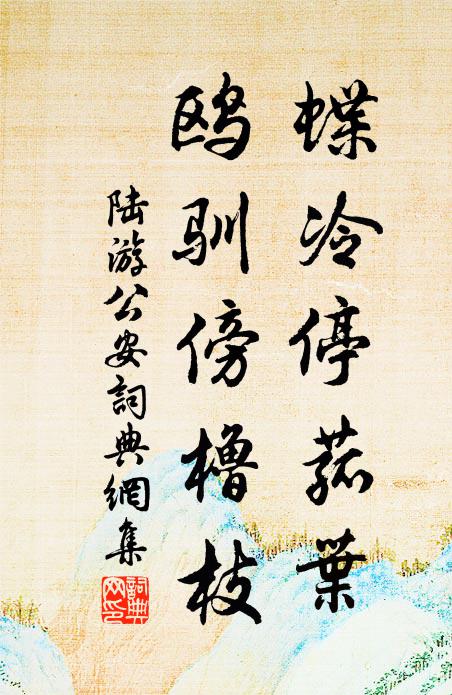 蝶冷停菰葉
鸥驯傍櫓枝
陆游公安詞典網集
詞典网印